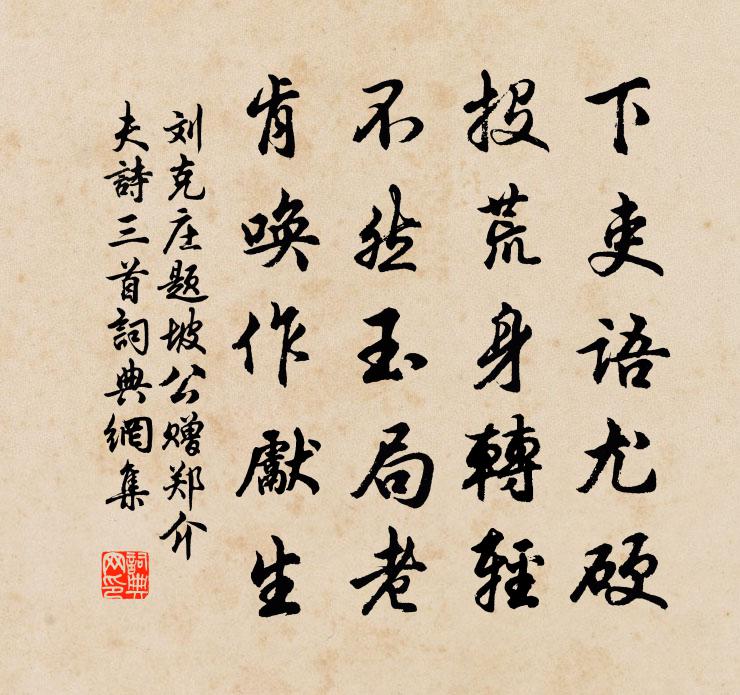 下吏语尤硬
投荒身轉輕
不然玉局老
肯唤作獻生
刘克庄题坡公赠郑介
夫詩三首詞典網集
詞典网印